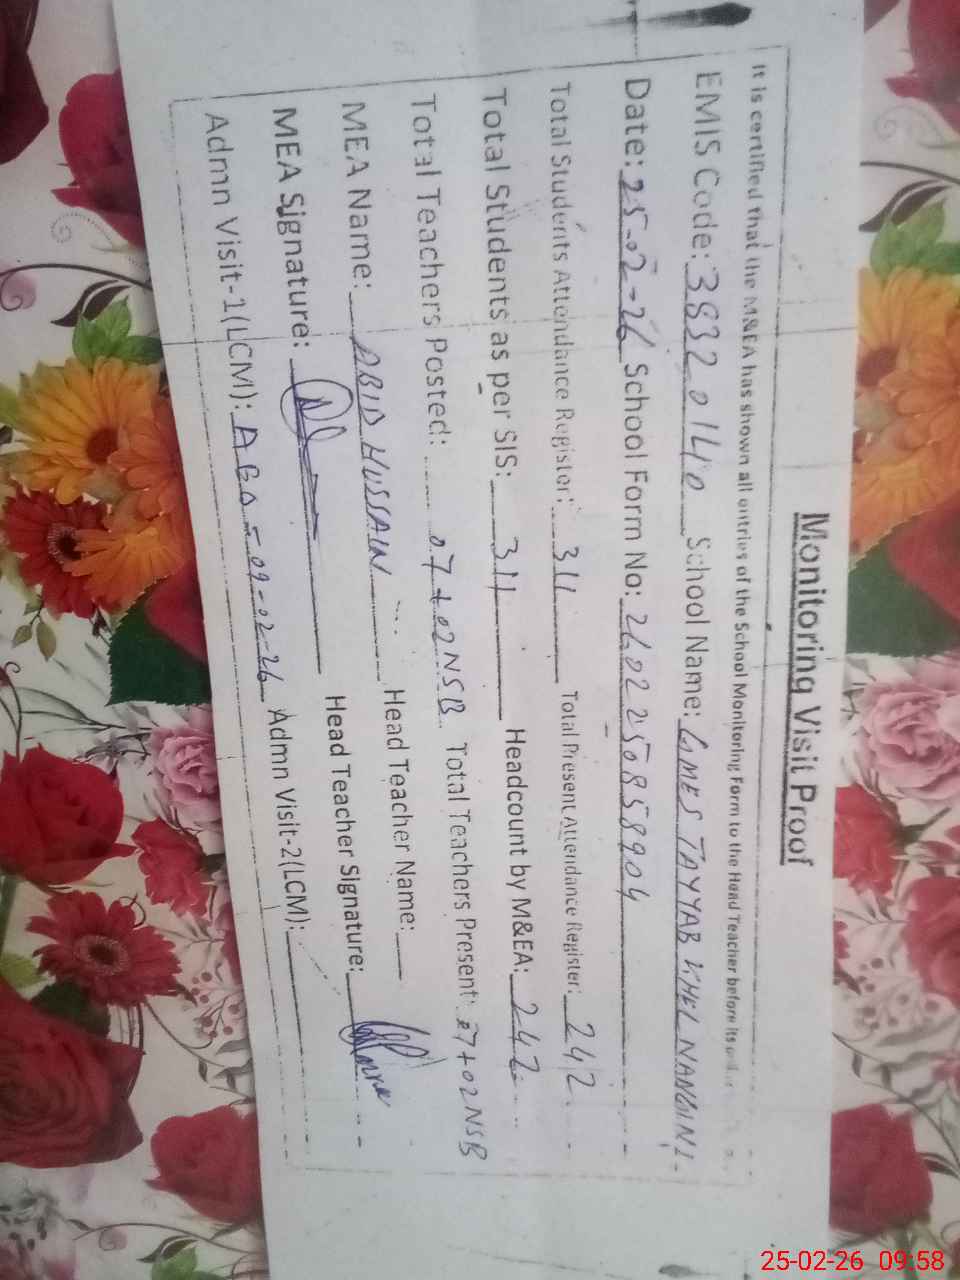 Monitoring Visit Proof
It is certified that the M&EA has shown all entries of the School Monitoring Form to the Head Teacher before its
EMIS Code: 38320140 School Name: GMES TAYYAB KHEL NANGINI
Date: 25-02-26 School Form No: 2602250858904
Total Students Attendance Register: 311 Total Present Attendance Register: 242
Total Students as per SIS: 311 Headcount by M&EA: 242
Total Teachers Posted: 07+02NSB Total Teachers Present: 07+02NSB
MEA Name: ABID HUSSAIN Head Teacher Name:
MEA Signature: Head Teacher Signature:
Admn Visit-1(LCM): ABD-09-02-26 Admn Visit-2(LCM):
25-02-26 09:58